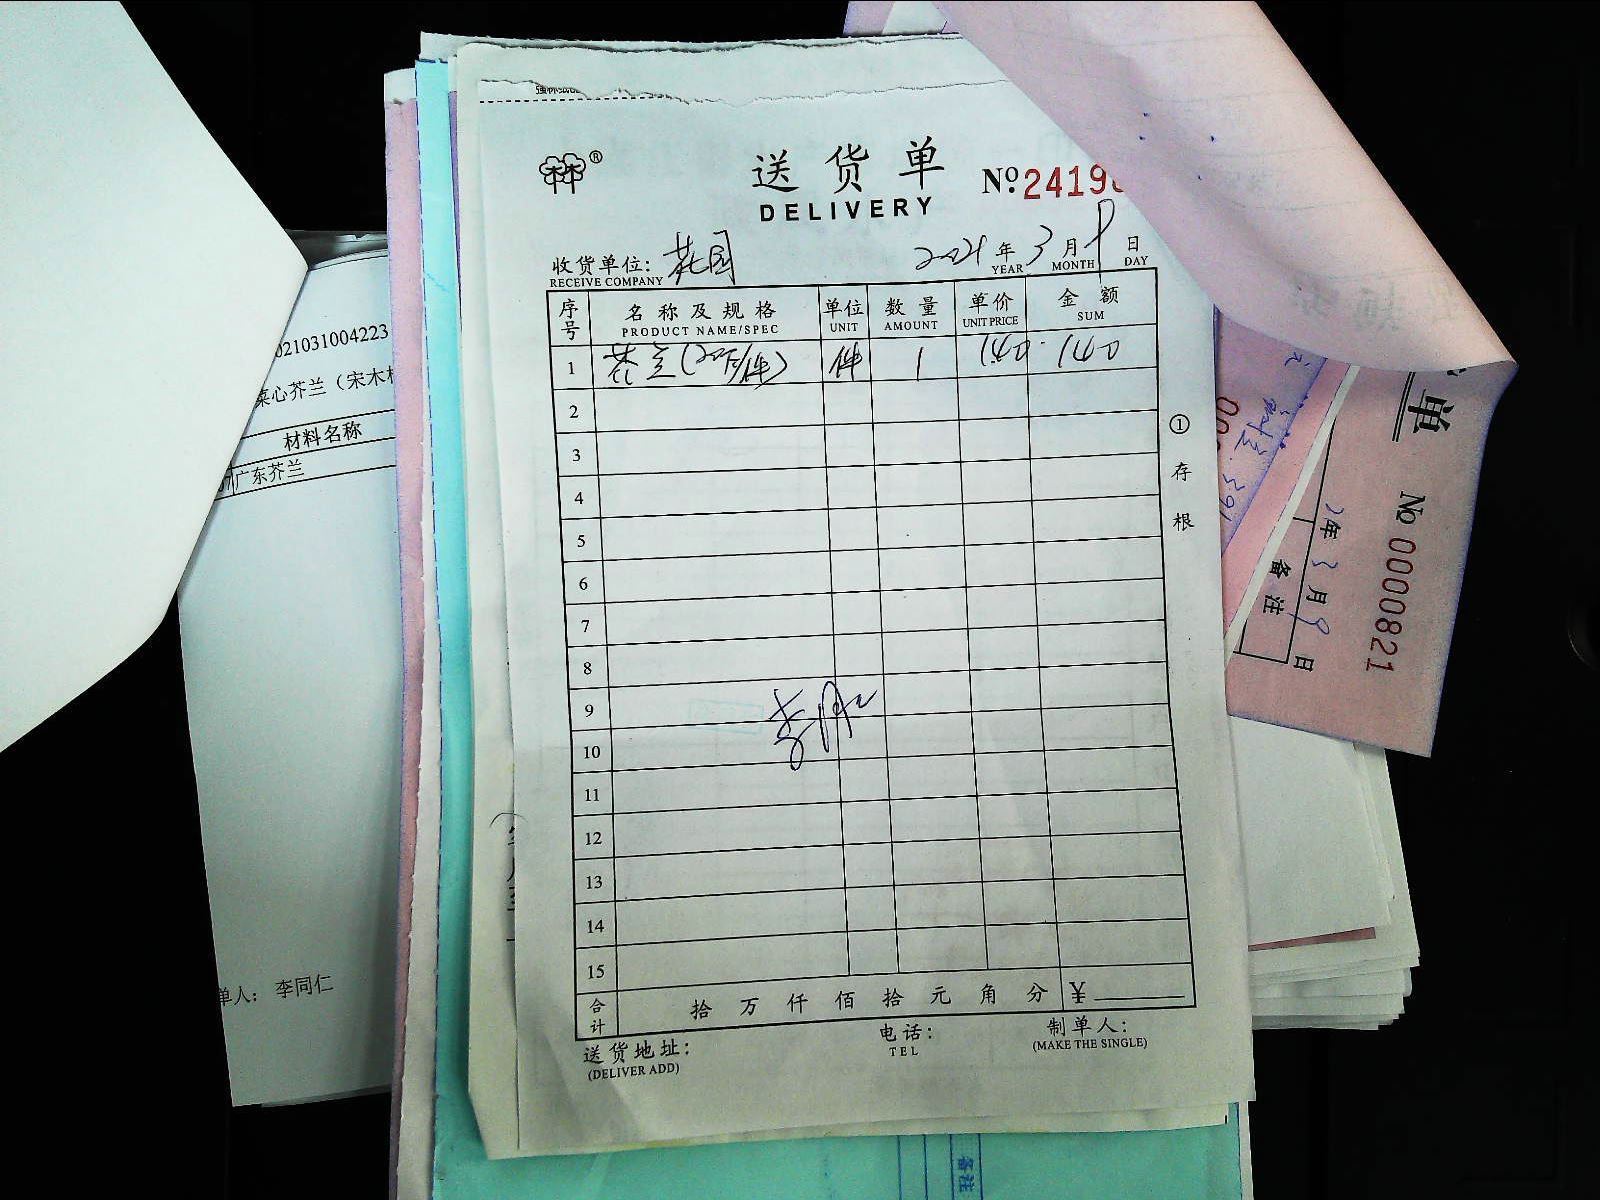 送货单
DELIVERY
№ 2419
收货单位: 花园
RECEIVE COMPANY
2021年3月9日
YEAR MONTH DAY
序号 名称及规格 单位 数量 单价 金额
PRODUCT NAME/SPEC UNIT AMOUNT UNIT PRICE SUM
1 芥兰(20斤/件) 件 1 140. 140
2
3
4
5
6
7
8
9
10
11
12
13
14
15
合计 拾 万 仟 佰 拾 元 角 分 ¥
送货地址:
(DELIVER ADD)
电话:
TEL
制单人:
(MAKE THE SINGLE)
①存根
021031004223
菜心芥兰（宋木
材料名称
广东芥兰
单人: 李同仁
单
№ 0000821
年3月9日
备注
备注